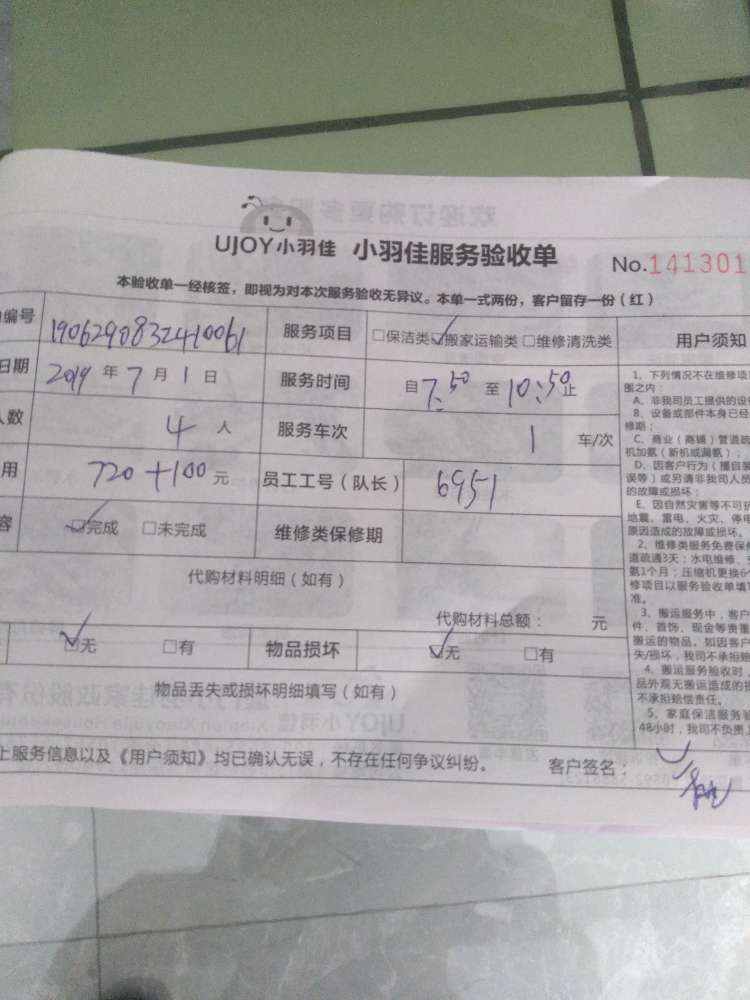 UJOY小羽佳 小羽佳服务验收单 No.141301
本验收单一经核签，即视为对本次服务验收无异议。本单一式两份，客户留存一份（红）
编号 1906290832410061 服务项目 □保洁类☑搬家运输类□维修清洗类 用户须知
日期 2019 年 7 月 1 日 服务时间 自 7:50 至 10:50 止
人数 4 人 服务车次 1 车/次
用 720+100 元 员工工号（队长） 6951
容 ☑完成 □未完成 维修类保修期
代购材料明细（如有）
代购材料总额： 元
☑无 □有 物品损坏 ☑无 □有
物品丢失或损坏明细填写（如有）
上服务信息以及《用户须知》均已确认无误，不存在任何争议纠纷。 客户签名：
1、下列情况不在维修项
围之内：
A、非我司员工提供的设
B、设备或部件本身已经
修期；
C、商业（商铺）管道疏
机加氨（新机或漏氨）；
D、因客户行为（擅自
误等）或另请非我司人员
的故障或损坏；
E、因自然灾害等不可抗
地震、雷电、火灾、停电
原因造成的故障或损坏。
2、维修类服务免费保修
道疏通3天；水电维修、
氨1个月；压缩机更换6
修项目以服务验收单填写
准。
3、搬运服务中，客户
件、首饰、现金等贵重
搬运的物品。如因客户
失/损坏，我司不承担赔
4、搬运服务验收时，
品外观无搬运造成的损
不承担赔偿责任。
5、家庭保洁服务
48小时，我司不负责